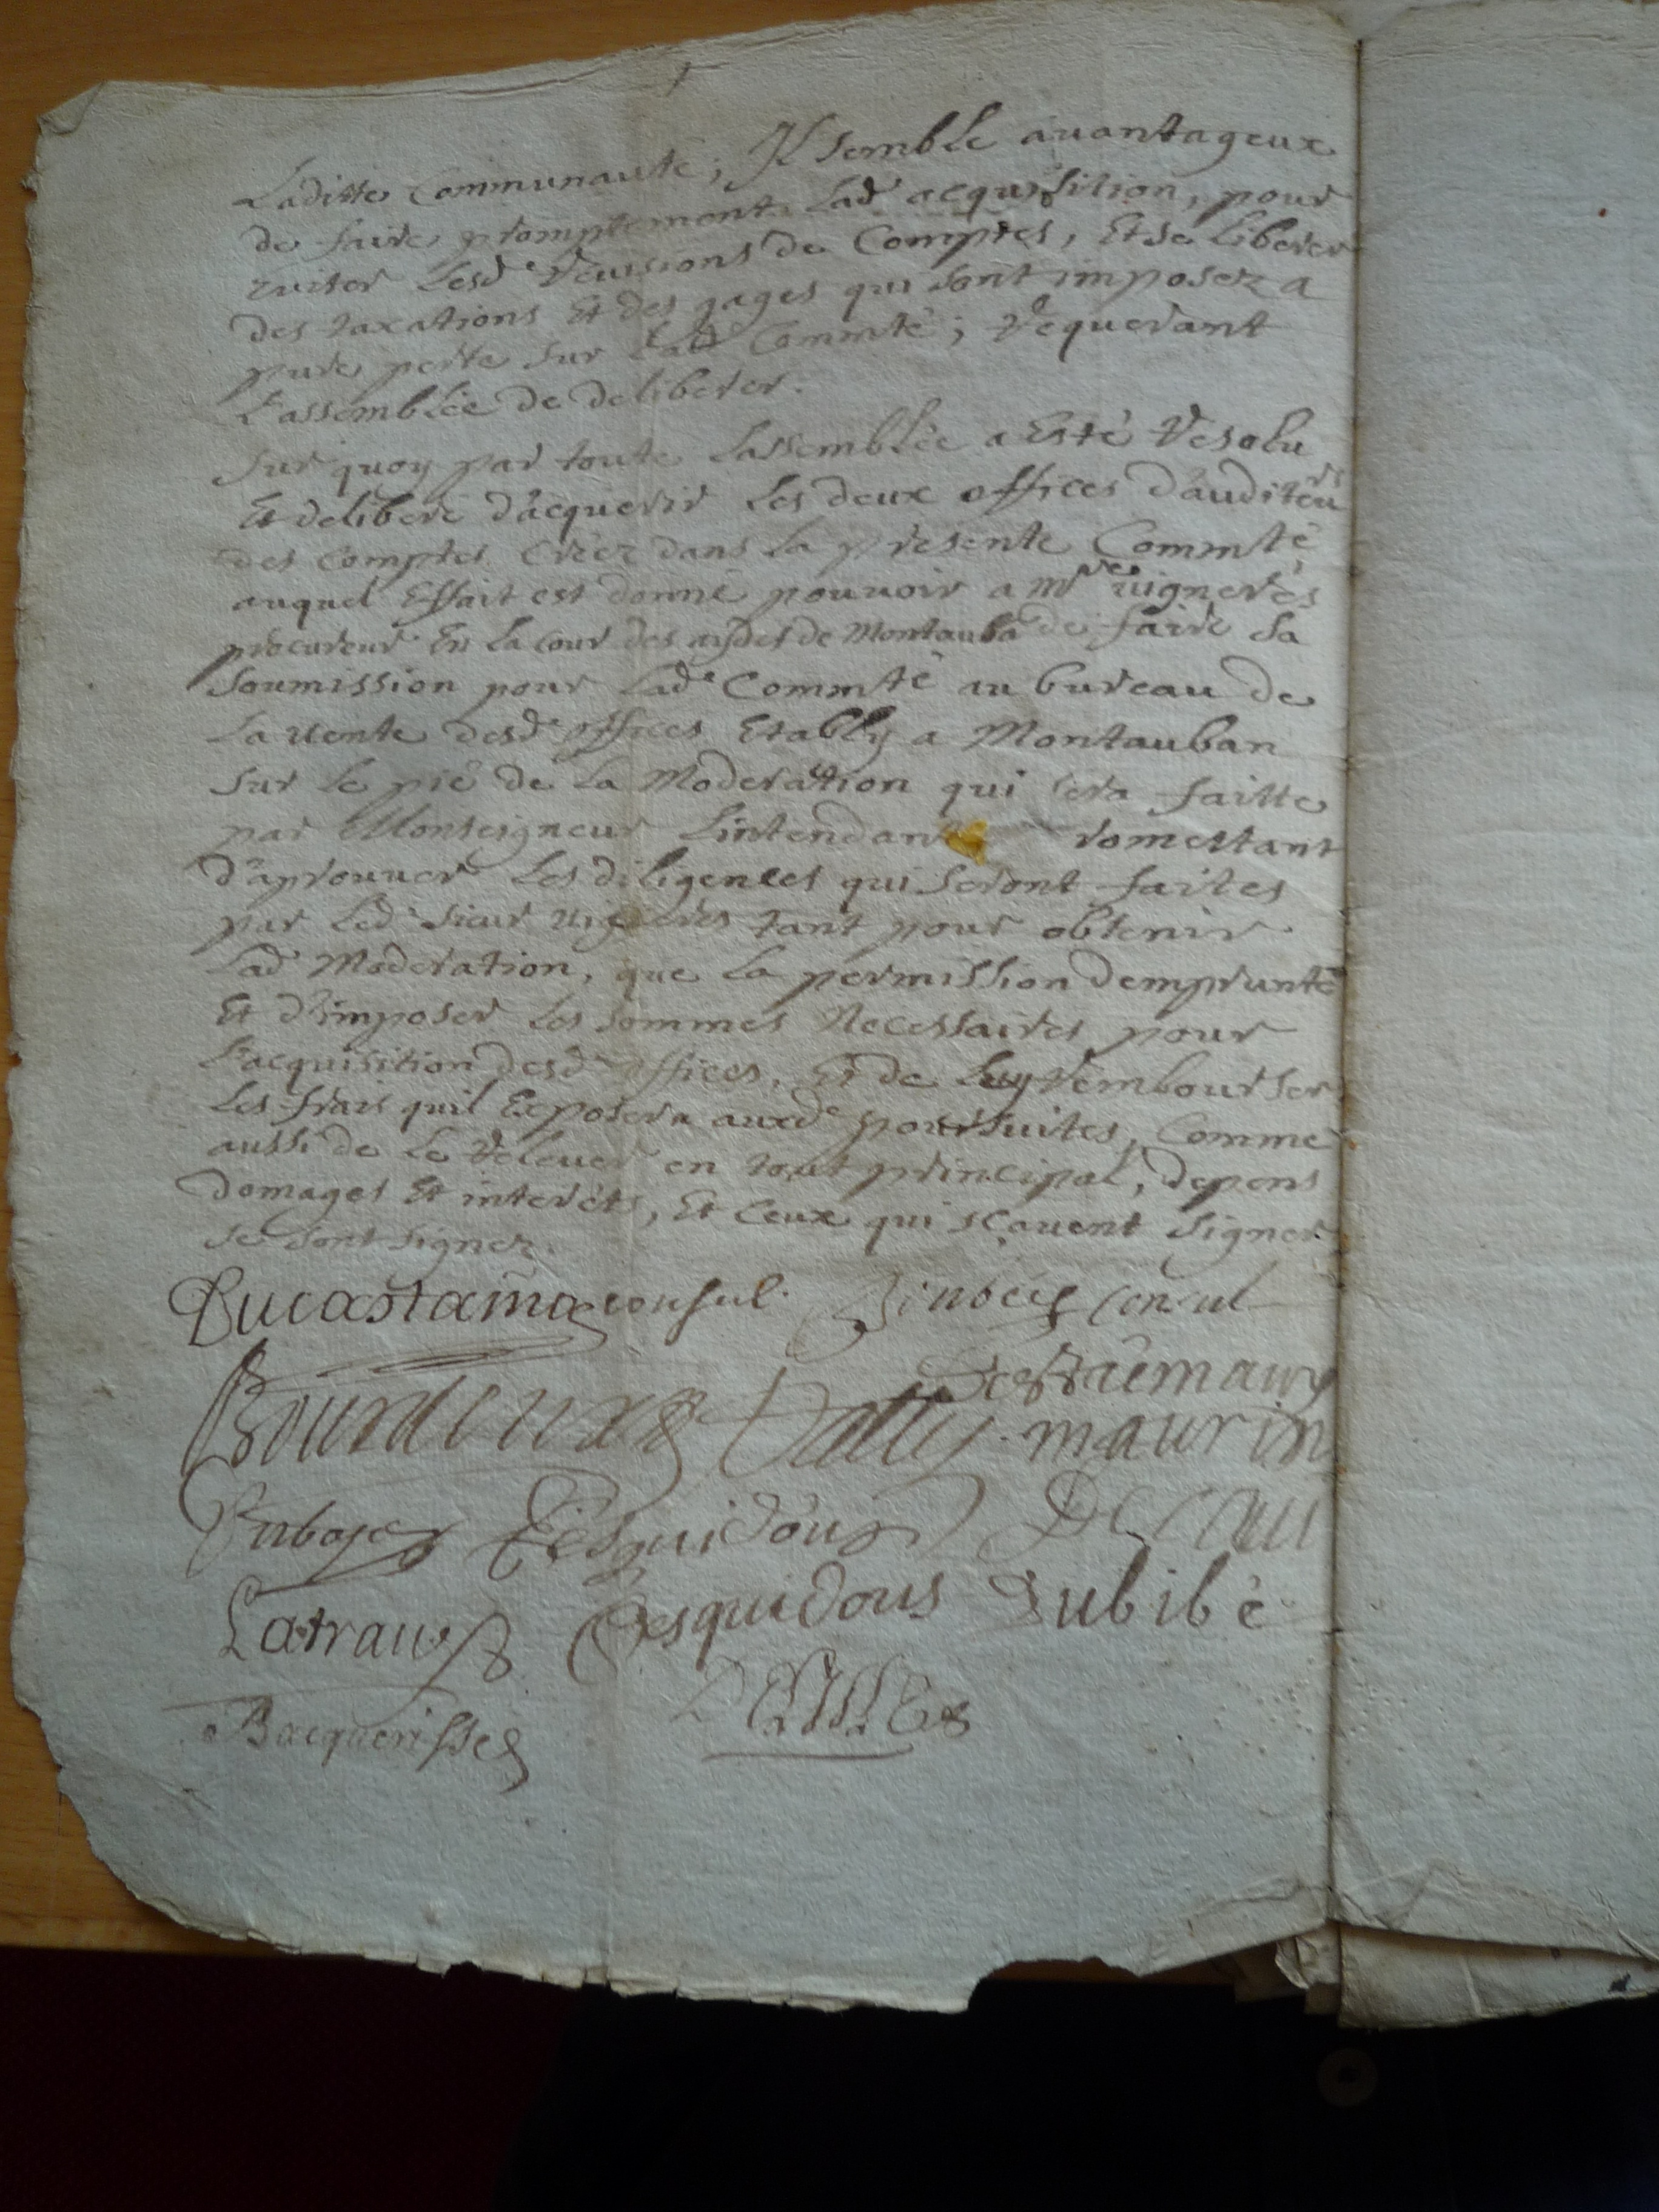 Laditte Communauté; Il semble auantageux
de faire promptement lad acquisition, pour
euiter lesd reuisions de Comptes, Et se liberer
des taxations Et des gages qui sont imposez a
pure perte sur lad Commté; requerant
L'assemblée de deliberer.
Sur quoy par toute Lassemblée a Esté resolu
Et deliberé d'acquerir les deux offices d'auditeurs
des Comptes Créez dans la presente Commté
auquel Effait est donné pouuoir a mr uignerés
procureur En la Cour des aydes de Montauba de faire sa
Soumission pour lad Commté au bureau de
La uente desd offices Etably a Montauban
Sur le pié de La Moderation qui sera faitte
par Monseigneur L'intendant romettant
D'aprouuer Les diligences qui seront faites
par led sieur tant pour obtenir
lad Moderation, que la permission d'emprunte
Et d'imposer les sommes Necessaires pour
L'acquisition desd offices, Et de luy rembourser
les frais quil Exposera auxd poursuites, Comme
aussi de le releuer en tout principal, depens
domages Et interéts, Et Ceux qui sçauent Signer
se sont signez.
Ducastaing consul. Consul
Destremau
Bourdenx Dally maurin
Duboye Desquidous Decau
Latrau Desquidous Dubibé
Bacquerisse